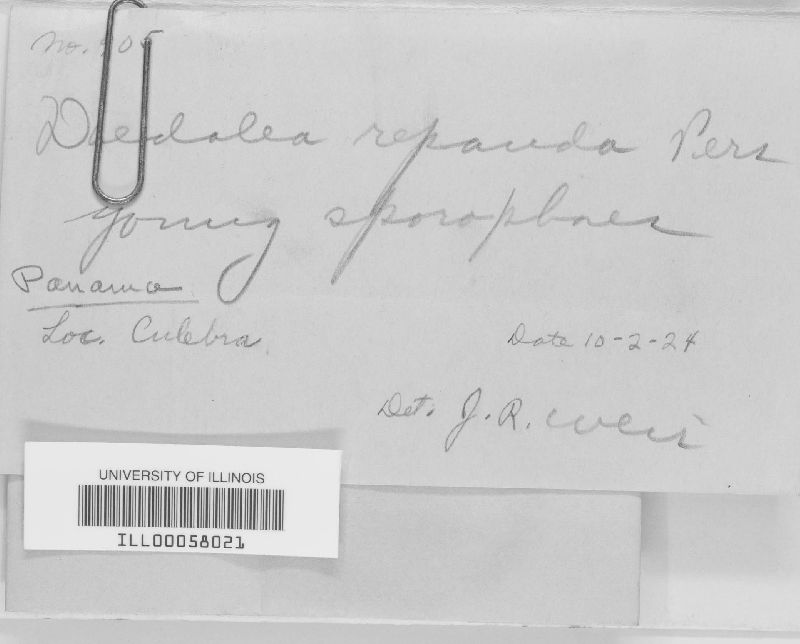 No.
Daedalea repanda Pers
young sporophores
Panama
Loc. Culebra.
Date 10-2-24
Det. J. R. Weir
UNIVERSITY OF ILLINOIS
ILL00058021